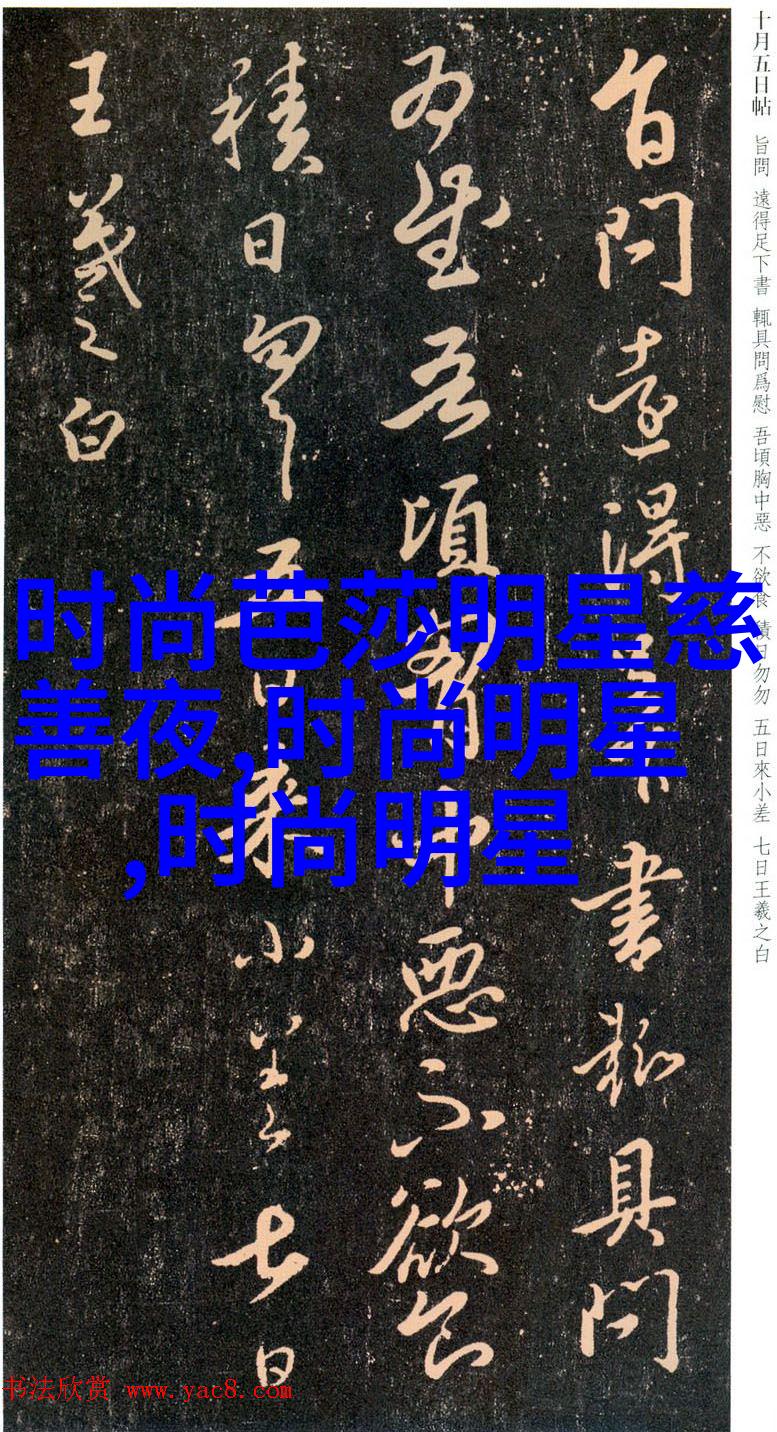 十月五日帖 旨問 遠得足下書 輒具問爲慰 吾頃胸中惡 不欲食 積日勿勿 五日來小差 七日王羲之白
旨問遠得足下書輒具問
為慰吾頃胸中惡不欲食
積日勿勿五日來小差七日
王羲之白
时尚芭莎明星慈
善夜,时尚明星
,时尚明星
书法欣赏 www.yac8.com